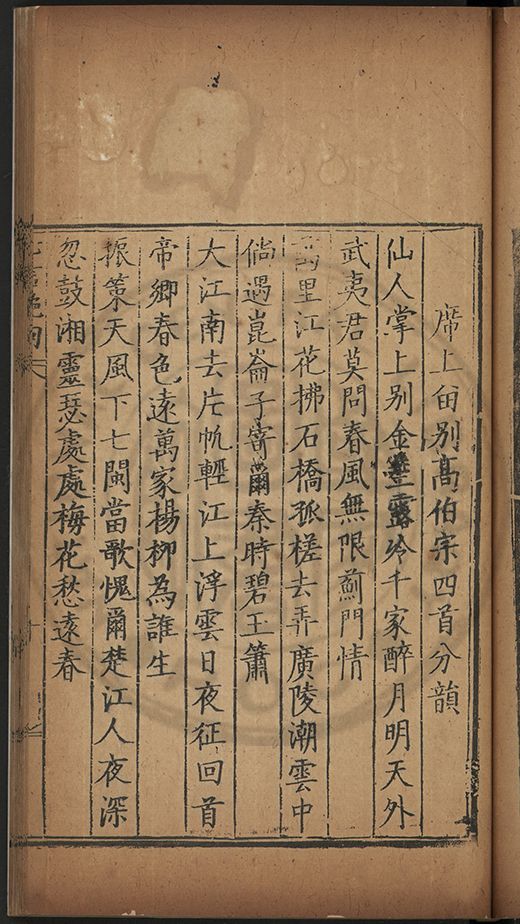 席上留別高伯宗四首分韻
仙人掌上別金莖露冷千家醉月明天外
武夷君莫問春風無限薊門情
萬里江花拂石橋孤槎去弄廣陵潮雲中
倘遇崑崙子寄爾秦時碧玉簫
大江南去片帆輕江上浮雲日夜征回首
帝鄉春色遠萬家楊柳為誰生
振策天風下七閩當歌愧爾楚江人夜深
忽鼓湘靈瑟處處梅花愁遠春